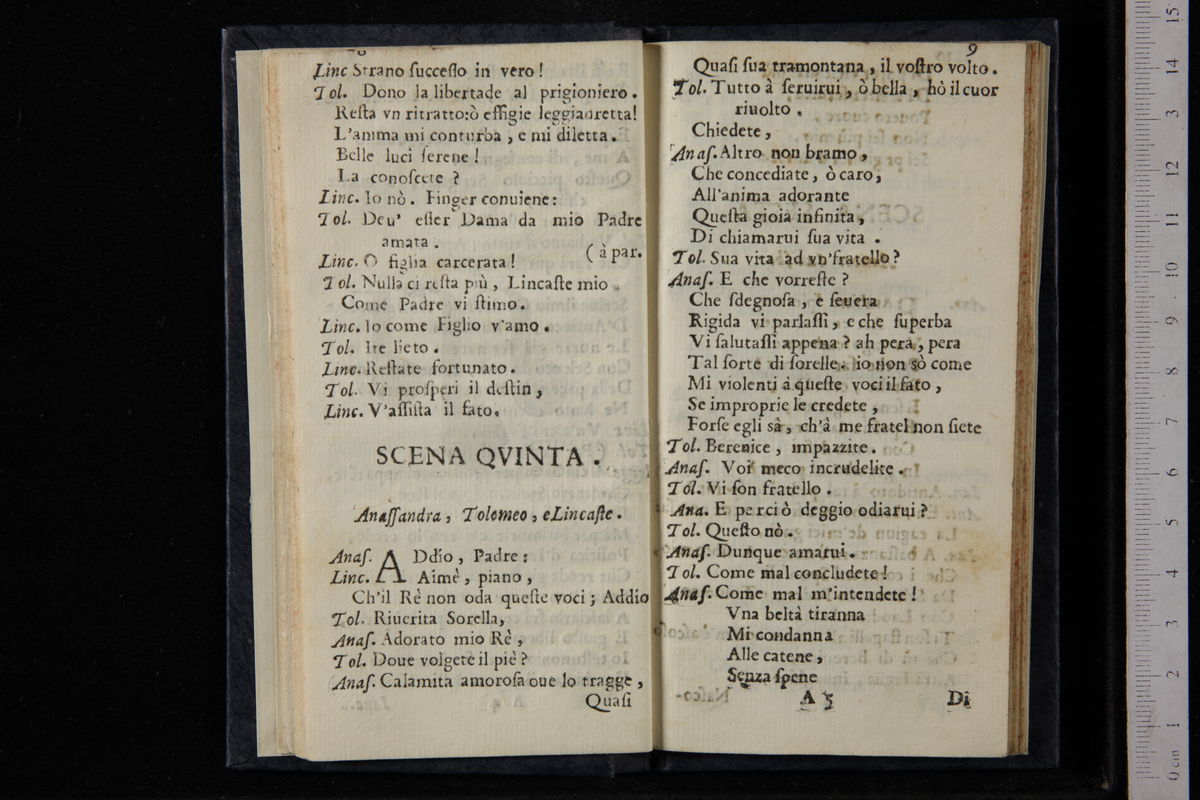 Linc Strano ſucceſſo in vero !
Tol. Dono la libertade al prigioniero .
Reſta vn ritratto:ò effigie leggiadretta!
L'anima mi conturba , e mi diletta .
Belle luci ſerene !
La conoſcete ?
Linc. Io nò . Finger conuiene:
Tol. Deu' eſſer Dama da mio Padre
amata .
Linc. O figlia carcerata ! ( à par.
Tol. Nulla ci reſta più , Lincaſte mio .
Come Padre vi ſtimo .
Linc. Io come Figlio v'amo .
Tol. Ite lieto .
Linc. Reſtate fortunato .
Tol. Vi proſperi il deſtin ,
Linc. V'aſſiſta il fato.
SCENA QVINTA .
Anaſſandra , Tolomeo , e Lincaſte .
Anaſ. ADdio , Padre :
Linc. Aimè , piano ,
Ch'il Rè non oda queſte voci ; Addio
Tol. Riuerita Sorella,
Anaſ. Adorato mio Rè ,
Tol. Doue volgete il piè ?
Anaſ. Calamita amoroſa oue lo tragge ,
Quaſi
9
Quaſi ſua tramontana , il voſtro volto .
Tol. Tutto à ſeruirui , ò bella , hò il cuor
riuolto .
Chiedete ,
Anaſ. Altro non bramo ,
Che concediate , ò caro ,
All'anima adorante
Queſta gioia infinita ,
Di chiamarui ſua vita .
Tol. Sua vita ad vn'fratello ?
Anaſ. E che vorreſte ?
Che ſdegnoſa , e ſeuera
Rigida vi parlaſſi , e che ſuperba
Vi ſalutaſſi appena ? ah pera , pera
Tal ſorte di ſorelle . io non sò come
Mi violenti à queſte voci il fato ,
Se improprie le credete ,
Forſe egli sà , ch'à me fratel non ſiete
Tol. Berenice , impazzite .
Anaſ. Voi meco incrudelite .
Tol. Vi ſon fratello .
Ana. E perciò deggio odiarui ?
Tol. Queſto nò .
Anaſ. Dunque amarui .
Tol. Come mal concludete !
Anaſ. Come mal m'intendete !
Vna beltà tiranna
Mi condanna
Alle catene ,
Senza ſpene
A 5 Di